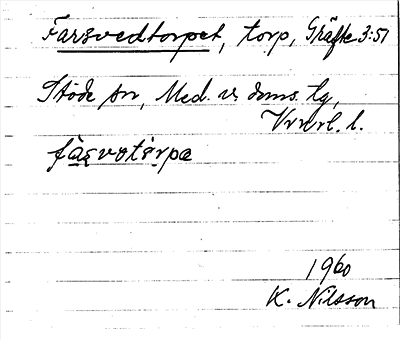 Farsvedtorpet, torp, Gräfte 3:57
Stöde sn, Med. v. doms. tg,
Vrnrl. l.
fàșvotʹạrpa
1960
K. Nilsson